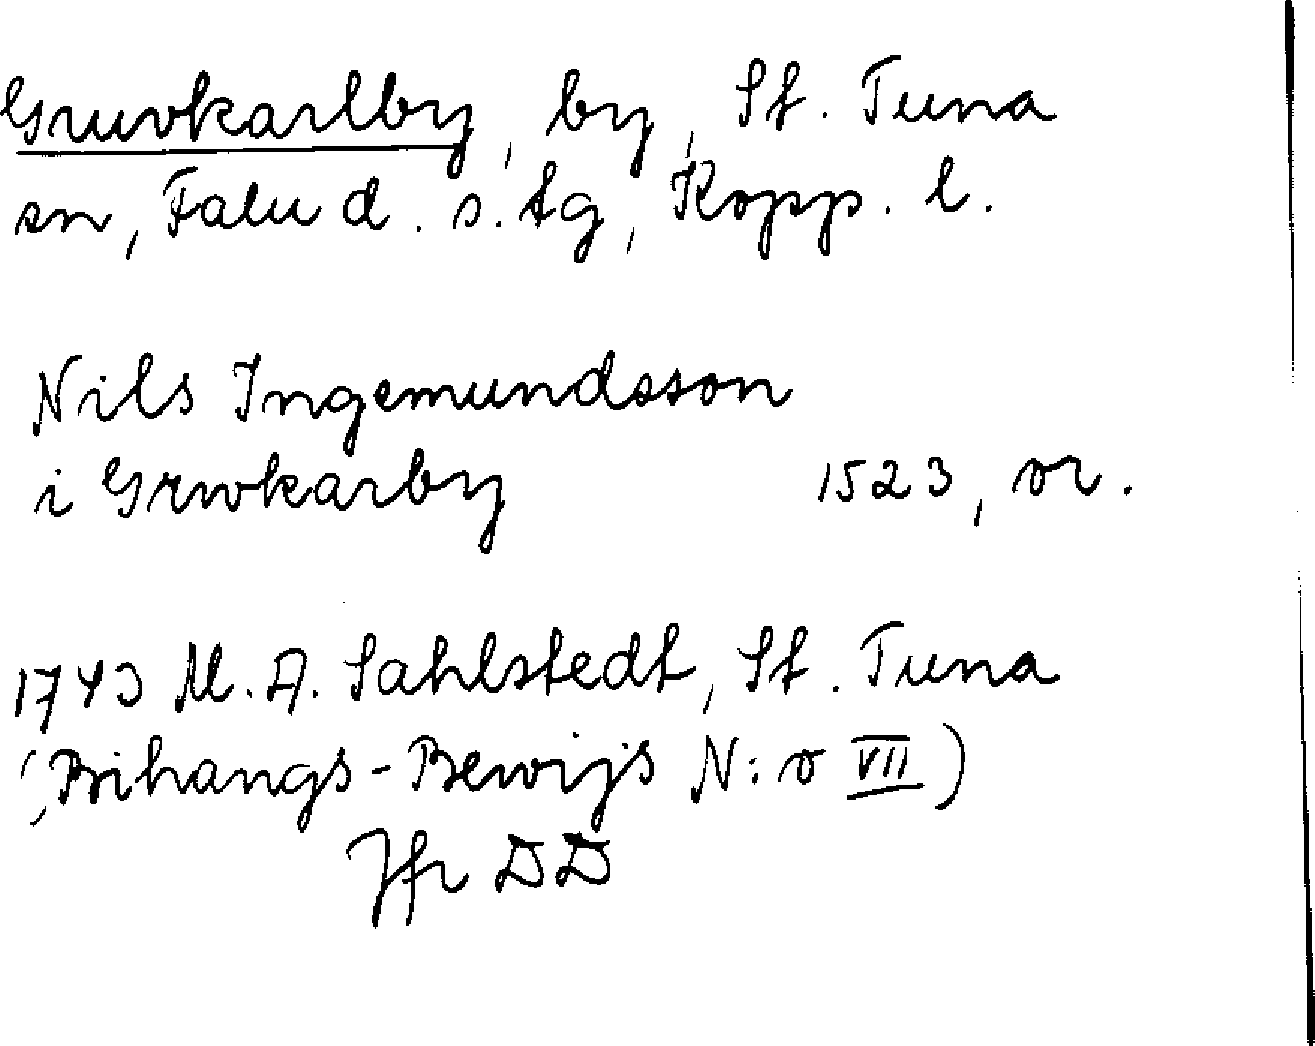 Gruvkarlby, by, St. Tuna
sn, Falu d. s. tg, Kopp. l.
Nils Ingemundsson
i Grwkarby 1523, or.
1743 M. A. Sahlstedt, St. Tuna
(Bihangs-Bewijs N:o VII)
Jfr DD